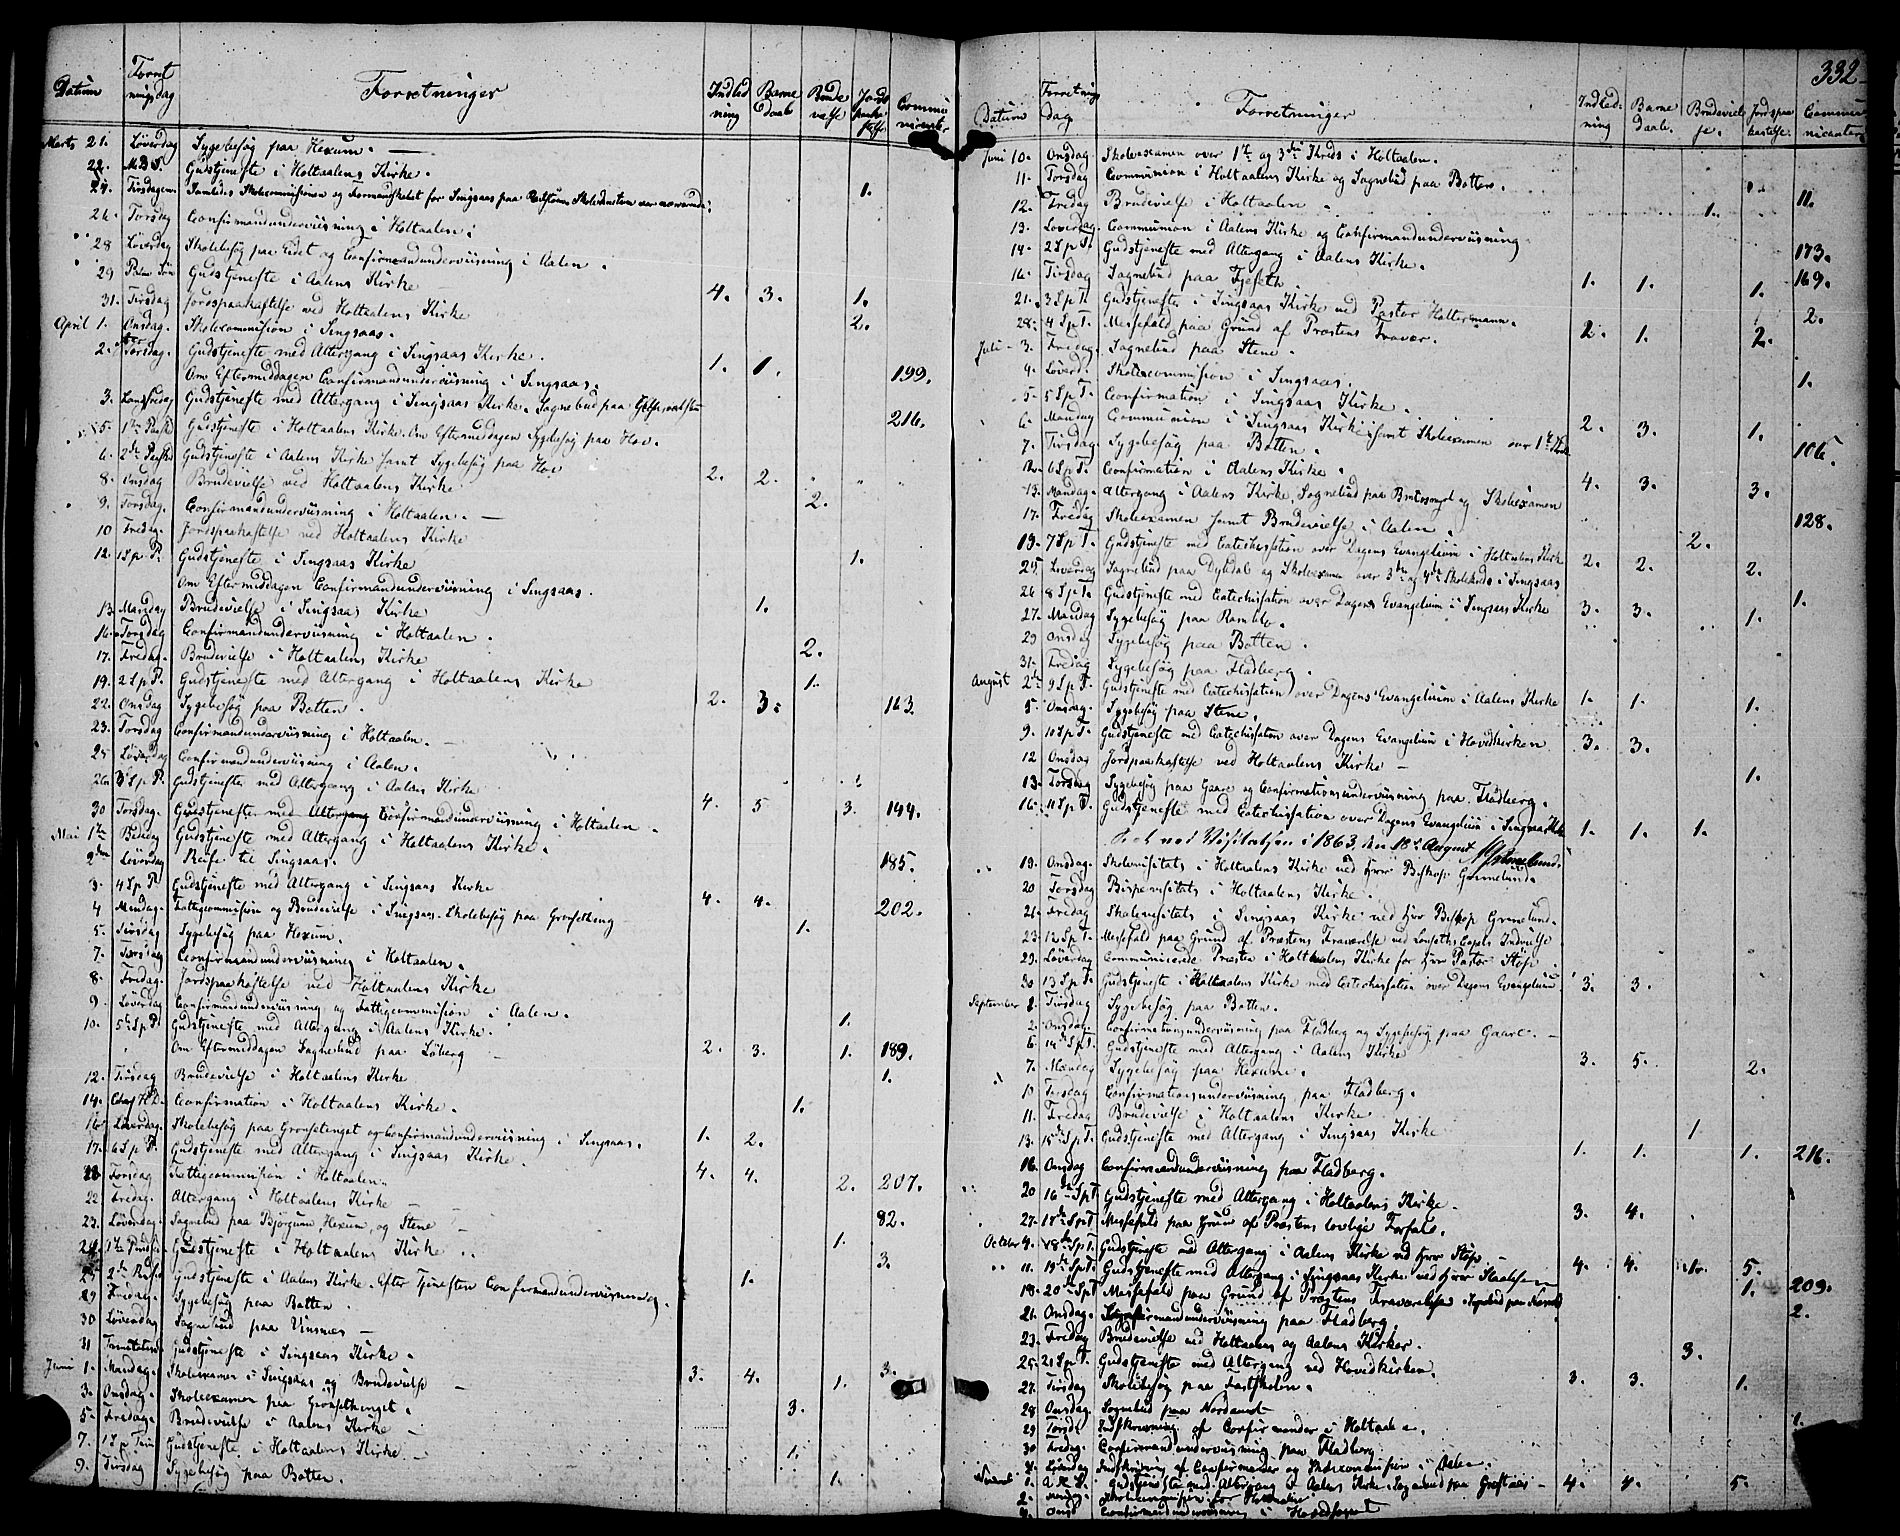 332
Datum Forretningsdag Forretninger Indledning Barnedaab Brudevielse Jordspaakastelse Communicanter
Marts 21. Løverdag Sygebesøg paa Hexum.
22. M.B.S. Gudstjeneste i Holtaalens Kirke.
24. Tirsdagen 1.
26. Torsdag Confirmandunderviisning i Holtaalen.
28 Løverdag Skolebesøg paa Eidet og Confirmandunderviisning i Aalen.
29 Palme Søn Gudstjeneste i Aalens Kirke 4. 3. 1.
31. Tirsdag Jordspaakastelse ved Holtaalens Kirke 2.
April 1. Onsdag. Skolecommission i Singsaas.
2. Torsdag. Gudstjeneste med Altergang i Singsaas Kirke. 1. 1. 199.
Om Eftermiddagen Confirmandunderviisning i Singsaas.
3. Langfredag Gudstjeneste med Altergang i Singsaas Kirke. Sognebud paa 216.
5. 1ste Paaske Gudstjeneste i Holtaalens Kirke. Om Eftermiddagen Sygebesøg paa Hov.
6. 2den Paasked Gudstjeneste i Aalens Kirke samt Sygebesøg paa Hov 2. 2.
8. Onsdag Brudevielse ved Holtaalens Kirke 2.
9. Torsdag. Confirmandunderviisning i Holtaalen.
10 Fredag. Jordspaakastelse ved Holtaalens Kirke 1.
12. 1 S. p. P. Gudstjeneste i Singsaas Kirke
Om Eftermiddagen Confirmandunderviisning i Singsaas. 1.
13. Mandag Brudevielse i Singsaas Kirke 2.
16. Torsdag Confirmandunderviisning i Holtaalen.
17. Fredag. Brudevielse i Holtaalens Kirke 1.
19. 2 S. p. P. Gudstjeneste med Altergang i Holtaalens Kirke 2. 3. 163
22. Onsdag Sygebesøg paa Botten.
23. Torsdag Confirmandunderviisning i Holtaalen.
25 Løverdag Confirmandunderviisning i Aalen.
26 3 S. p. P. Gudstjeneste med Altergang i Aalens Kirke 4. 5 3. 144.
30 Torsdag. Confirmandunderviisning i Holtaalen.
Mai 1ste Bededag Gudstjeneste med Altergang i Holtaalens Kirke. 185.
2den Løverdag Reise til Singsaas.
3. 4 S. p. P. Gudstjeneste med Altergang i Singsaas Kirke 4. 4. 202.
4 Mandag. Fattigcommission og Brudevielse i Singsaas. Skolebesøg paa Grønsetheng 1.
5. Tirsdag Sygebesøg paa Hexum.
7. Torsdag Confirmandunderviisning i Holtaalen.
8. Fredag. Jordspaakastelse ved Holtaalens Kirke 1.
9. Løverdag Confirmandunderviisning og Fattigcommission i Aalen.
10. 5te S. p. P. Gudstjeneste med Altergang i Aalens Kirke. 2. 3. 1. 189.
Om Eftermiddagen Sognebud paa Løberg 1.
12. Tirsdag Brudevielse i Holtaalens Kirke 1.
14. Confirmation i Holtaalens Kirke. 1. 2.
16 Løverdag. Skolebesøg paa Grønsetenget og Confirmandunderviisning i Singsaas.
17. 6 S. p. P. Gudstjeneste med Altergang i Singsaas Kirke. 4. 4. 2. 207.
Torsdag Fattigcommission i Holtaalen.
22 Fredag. Altergang i Holtaalens Kirke 82.
23. Løverdag Sognebud paa Bjørgum, Hexum, og Stene 1. 3.
24. 1ste Pindse Gudstjeneste i Holtaalens Kirke
25 2den Pindse Gudstjeneste i Aalens Kirke. Efter Tjenesten Confirmandunderviisning. 1.
29 Fredag. Sygebesøg paa Botten.
30 Løverdag Sognebud paa Vinsnes
31 Trinitatis Gudstjeneste i Singsaas Kirke. 3. 4. 1. 3.
Juni 1. Mandag. Skoleexamen i Singsaas og Brudevielse 3.
3. Onsdag. Skoleexamen paa Grønsethenget.
5. Fredag. Brudevielse i Aalens Kirke 1.
7. 1 S. p. Trin Gudstjeneste i Holtaalens Kirke 1.
9. Tirsdag Sygebesøg paa Botten.
Datum Forretningsdag Forretninger Indledning Barnedaab. Brudevielse. Jordspaakastelse. Communicanter
Juni 10. Onsdag. Skoleexamen over 1ste og 3die Kreds i Holtaalen.
11. Torsdag Communion i Holtaalens Kirke og Sognebud paa Botten. 11.
12. Fredag Brudevielse i Holtaalen 1.
13. Løverdag. Communion i Aalens Kirke og Confirmandunderviisning. 173.
14. 2 S. p. T. Gudstjeneste med Altergang i Aalens Kirke. 1. 1. 1. 169.
16. Tirsdag Sognebud paa 2.
21. 3 S. p. T. Gudstjeneste i Singsaas Kirke ved Pastor Holtermann. 2. 1. 2.
28. 4 S. p. T. Messefald paa Grund af Præstens Fravær.
Juli 3. Fredag. Sognebud paa Stene. 1.
4. Løverd. Skolecommission i Singsaas.
5. 5 S. p. T. Confirmation i Singsaas Kirke. 2. 3. 1.
6. Mandag Communion i Singsaas Kirke samt Skoleexamen over 1ste Kreds 106.
7. Tirsdag Sygebesøg paa Botten.
12. 6 S. p. T. Confirmation i Aalens Kirke. 4. 3. 3.
13. Mandag. Altergang i Aalens Kirke, Sognebud paa og Skoleexamen 128.
17. Fredag Skoleexamen samt Brudevielse i Aalen. 2.
19. 7 S. p. T. Gudstjeneste med Catechisation over Dagens Evangelium i Holtaalens Kirke 2. 2. 2.
25 Løverdag Sognebud paa Dyhdal og Skoleexamen over 3die og 4de Skolekreds i Singsaas 1.
26 8 S. p. T. Gudstjeneste med Catechisation over Dagens Evangelium i Singsaas Kirke 3. 3. 1.
27. Mandag Sygebesøg paa Ramlo.
29 Onsdag Sygebesøg paa Botten.
31. Fredag Sygebesøg paa Fladberg.
August 2. 9 S. p. T. Gudstjeneste med Catechisation over Dagens Evangelium i Aalens Kirke 1. 1. 1.
5. Onsdag. Sygebesøg paa Stene.
9. 10 S. p. T. Gudstjeneste med Catechisation over Dagens Evangelium i Hovedkirken 3. 3.
12 Onsdag Jordspaakastelse ved Holtaalens Kirke 1.
13. Torsdag Sygebesøg paa Gaare og Confirmationsunderviisning paa Fladberg.
16. 11 S. p. T. Gudstjeneste med Catechisation over Dagens Evangelium i Singsaas Kirke 1. 1. 1.
Seet ved Visitatsen i 1863, den 18de August Grimelund.
19. Onsdag. Skolevisitats i Holtaalens Kirke ved Herr Biskop Grimelund.
20 Torsdag Bispevisitats i Holtaalens Kirke.
21. Fredag Skolevisitats i Singsaas Kirke ved Herr Biskop Grimelund.
23. 12 S. p. T. Messefald paa Grund af Præstens Fraværelse ved Indvielse
29. Løverdag Communicerede Præsten i Holtaalens Kirke for Herr Pastor Støp
30 13 S. p. T. Gudstjeneste i Holtaalens Kirke med Catechisation over Dagens Evangelium 3. 3.
September 1. Tirsdag Sygebesøg paa Botten.
2. Onsdag. Confirmationsunderviisning paa Fladberg og Sygebesøg paa Gaare.
6. 14de S. p. T. Gudstjeneste med Altergang i Aalens Kirke 3. 5. 2.
7. Mandag Sygebesøg paa Hexum.
10 Torsdag Confirmationsunderviisning paa Fladberg.
11. Fredag Brudevielse i Holtaalens Kirke 1
13. 15de S. p. T. Gudstjeneste med Altergang i Singsaas Kirke 1. 1. 1. 216.
16. Onsdag Confirmandunderviisning paa Fladberg.
20 16de S. p. T Gudstjeneste med Altergang i Holtaalens Kirke 3. 4.
27. 17de S. p. T Messefald paa Grund af Præstens lovlige Forfald.
October 4. 18de S. p. T. Gudstjeneste med Altergang i Aalens Kirke ved Herr Støp 4. 4. 1. 5.
11. 19de S. p. T. Gudstjeneste med Altergang i Singsaas Kirke ved Herr 1. 209.
18. 20de S. p. T Messefald paa Grund af Præstens Fraværelse. Sognebud paa 2.
21. Onsdag. Confirmandunderviisning paa Fladberg.
23. Fredag Brudevielse ved Holtaalens og Aalens Kirker. 3.
25. 21 S. p. T. Gudstjeneste med Altergang ved Hovedkirken. 3. 3. 1.
27. Tirsdag Skolebesøg paa Fastskolen.
28 Onsdag. Sognebud paa 1.
29 Torsd. Indskrivning af Confirmander i Holtaalen.
30 Fredag. Confirmandunderviisning paa Fladberg
Løverdag Indskrivning af Confirmander og Skolecommission i Aalen.
Novemb. 1. Gudstjeneste med Altergang i Aalens Kirke. Sognebud paa 4. 4. 5.
2. Mandag. Skolecommission for Holtaalen
4. Onsd Confirmandunderviisning i Hovedsognet